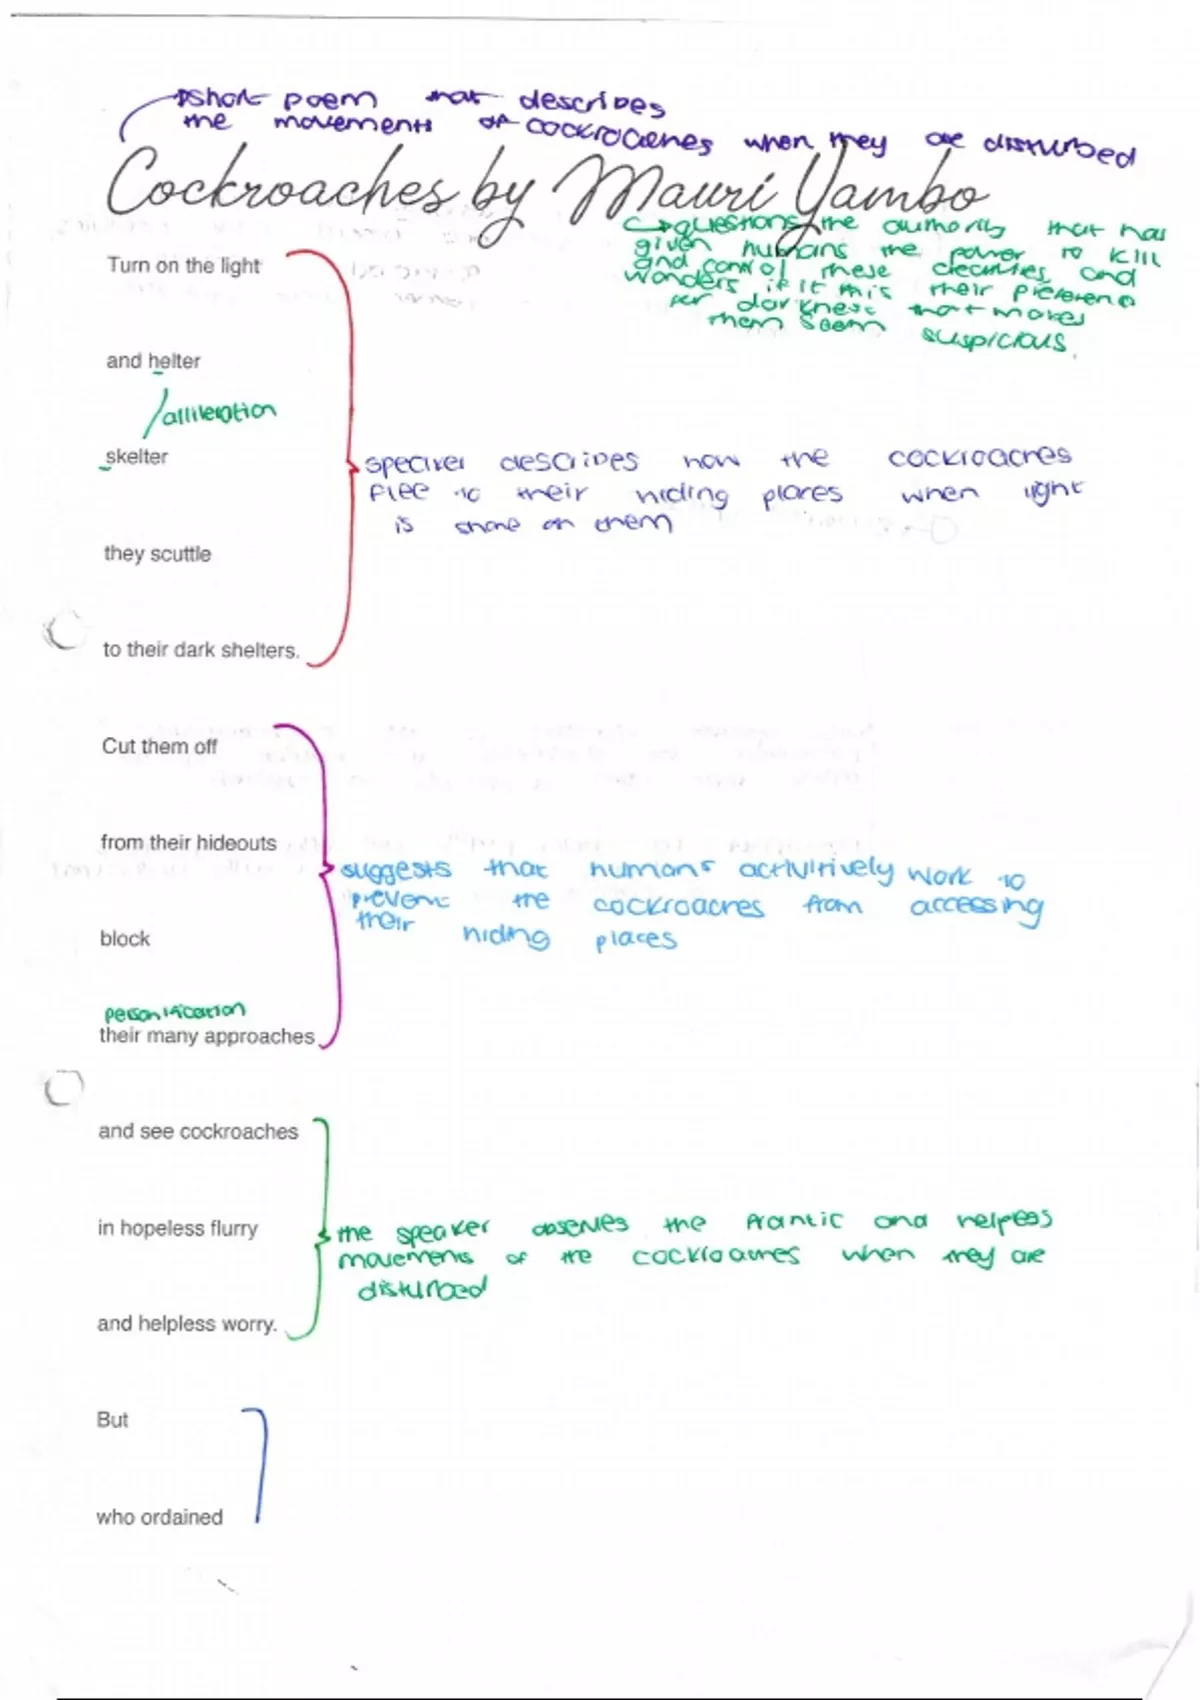 short poem that describes
the movements of cockroaches when they are disturbed
Cockroaches by Mauri Yambo
questions the authority that has
given humans the power to kill
and control these creatures and
wonders if it this their preference
for darkness that makes
them seem suspicious.
Turn on the light
and helter
alliteration
skelter
speaker describes how the cockroaches
flee to their hiding places when light
is shone on them
they scuttle
to their dark shelters.
Cut them off
from their hideouts
suggests that humans activitively work to
prevent the cockroaches from accessing
their hiding places
block
personification
their many approaches
and see cockroaches
in hopeless flurry
the speaker observes the frantic and helpless
movements of the cockroaches when they are
disturbed
and helpless worry.
But
who ordained